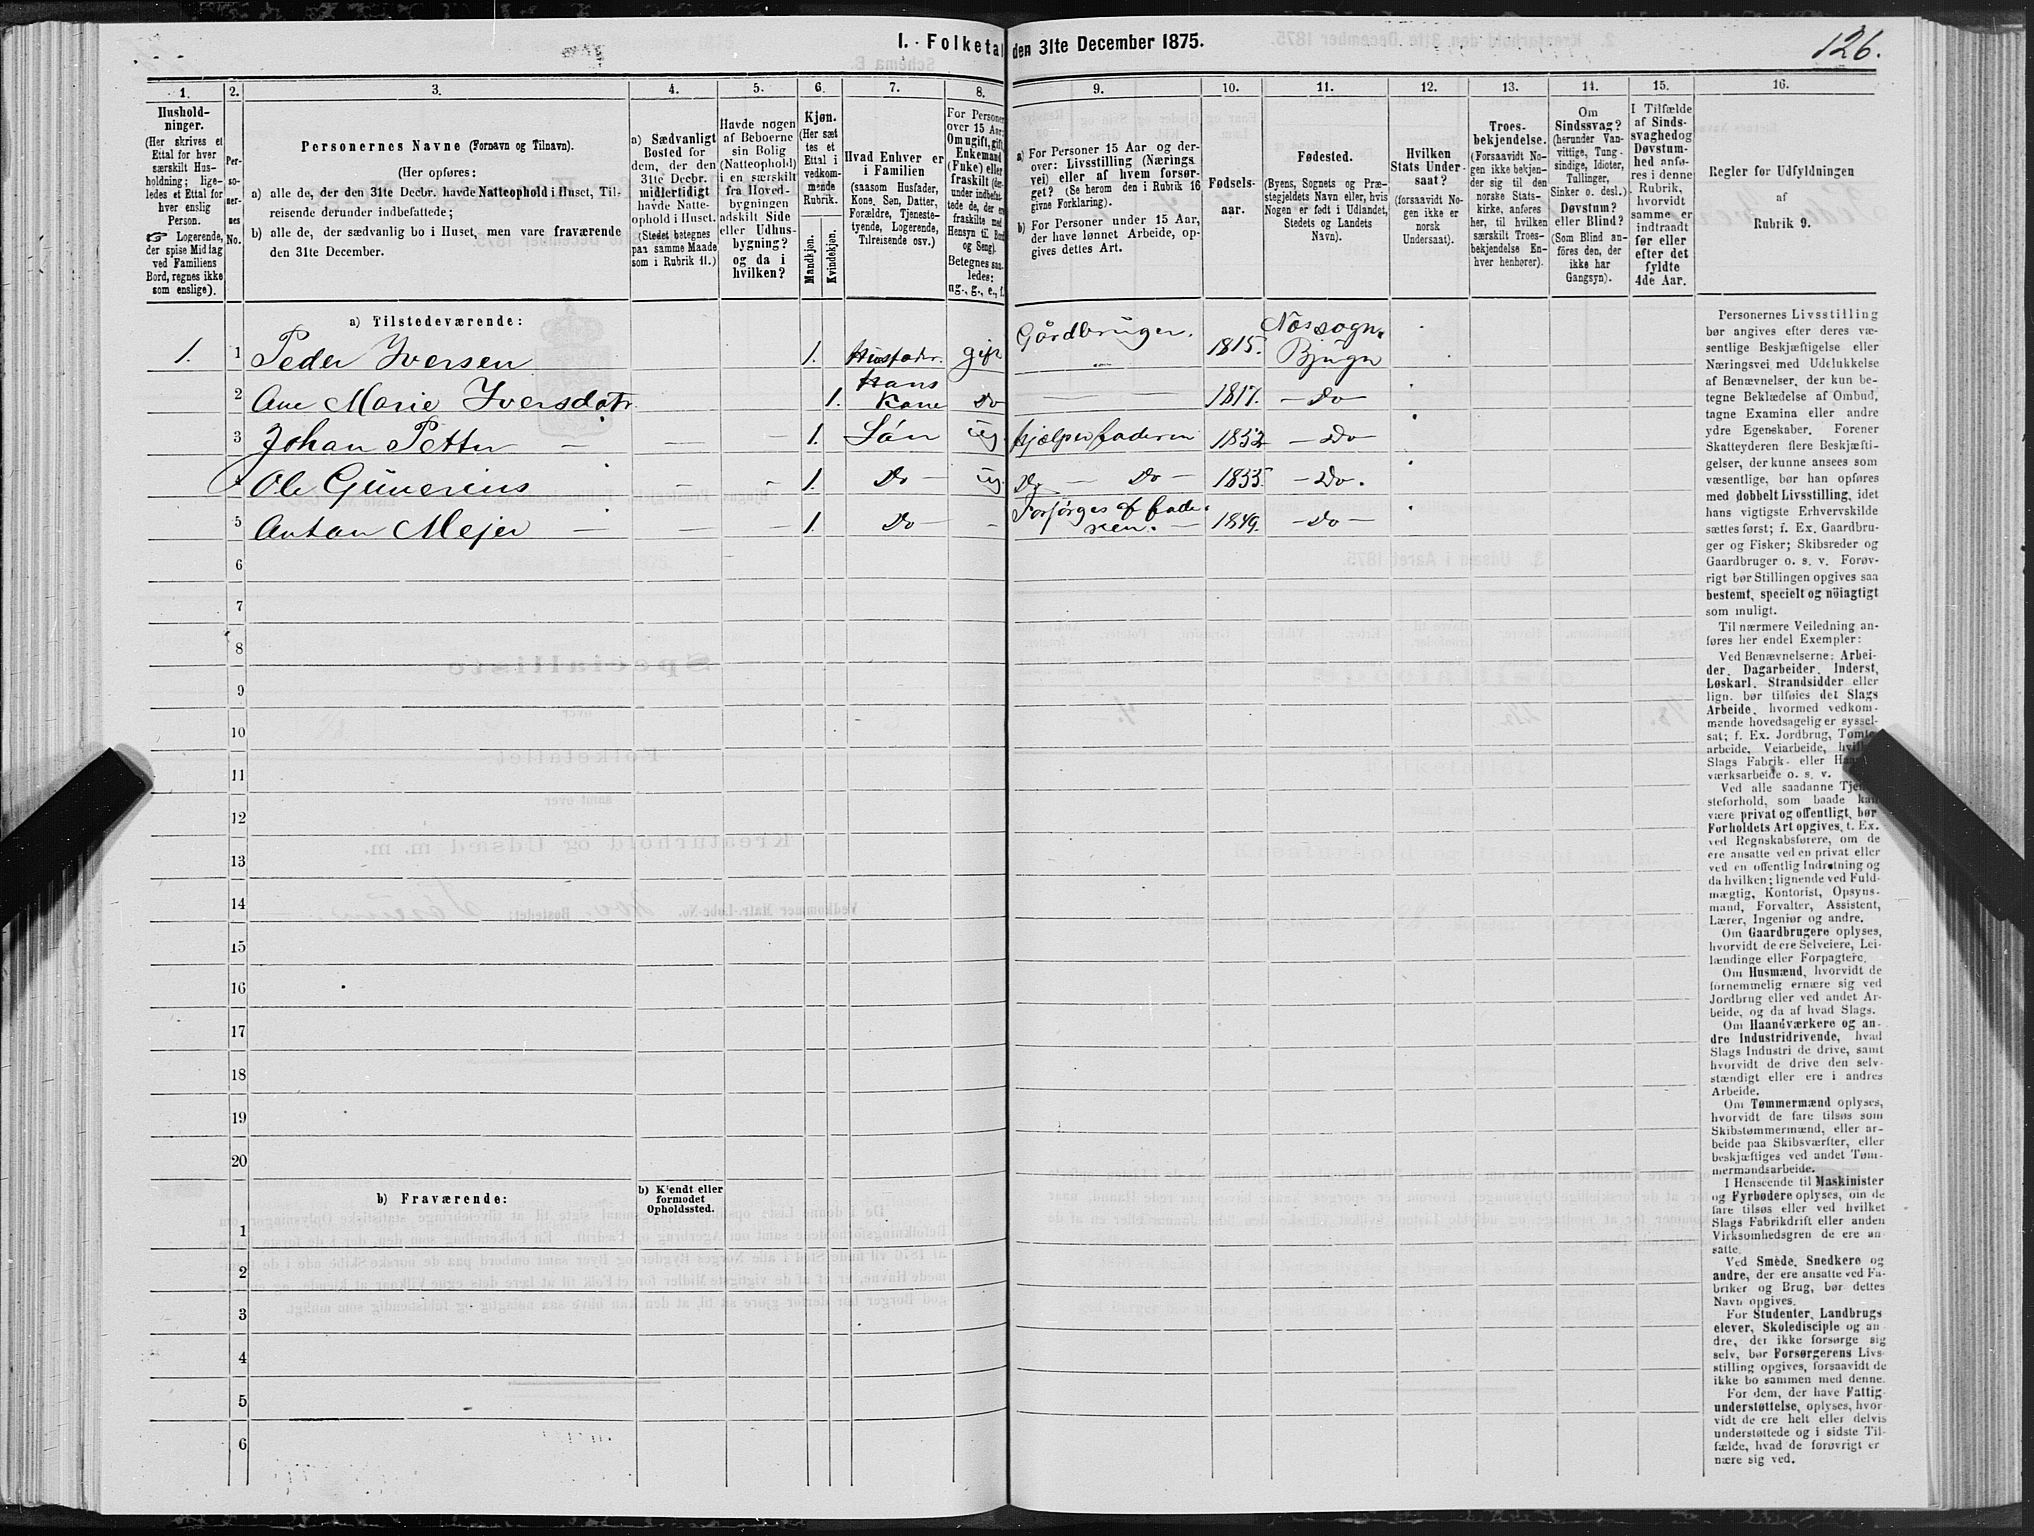 126.
I. Folketal den 31te December 1875.
1. 2. 3. 4. 5. 6. 7. 8. 9. 10. 11. 12. 13. 14. 15. 16.
Hushold-
ninger.
(Her skrives et
Ettal for hver
særskilt Hus-
holdning; lige-
ledes et Ettal for
hver enslig
Person.
☞ Logerende,
der spise Middag
ved Familiens
Bord, regnes ikke
som enslige).
Per-
so-
ner-
nes
No.
Personernes Navne (Fornavn og Tilnavn).
(Her opføres:
a) alle de, der den 31te Decbr. havde Natteophold i Huset, Til-
reisende derunder indbefattede;
b) alle de, der sædvanlig bo i Huset, men vare fraværende
den 31te December.
a) Sædvanligt
Bosted for
dem, der den
31te Decbr.
midlertidigt
havde Natte-
ophold i Huset.
(Stedet betegnes
paa samme Maade
som i Rubrik 11.)
Havde nogen
af Beboerne
sin Bolig
(Natteophold)
i en særskilt
fra Hoved-
bygningen
adskilt Side
eller Udhus-
bygning?
og da i
hvilken?
Kjøn.
(Her sæt
tes et
Ettal i
vedkom-
mende
Rubrik.
Mandkjøn.
Kvindekjøn.
Hvad Enhver er
i Familien
(saasom Husfader,
Kone, Søn, Datter,
Forældre, Tjeneste-
tyende, Logerende,
Tilreisende osv.)
For Personer
over 15 Aar:
Om ugift, gift,
Enkemand
(Enke) eller
fraskilt (der-
under indbefat-
tede de, der er
fraskilte med
Hensyn til Bord
og Seng).
Betegnes saa-
ledes:
ug., g., e., f.
a) For Personer 15 Aar og der-
over: Livsstilling (Nærings
vei) eller af hvem forsør-
get? (Se herom den i Rubrik 16
givne Forklaring).
b) For Personer under 15 Aar,
der have lønnet Arbeide, op-
gives dettes Art.
Fødsels-
aar.
Fødested.
(Byens, Sognets og Præ-
stegjeldets Navn eller, hvis
Nogen er født i Udlandet,
Stedets og Landets
Navn).
Hvilken
Stats Under-
saat?
(forsaavidt No-
gen ikke er
norsk
Undersaat).
Troes-
bekjendelse.
(Forsaavidt No-
gen ikke bekjen-
der sig til den
norske Stats-
kirke, anføres
her, til hvilken
særskilt Troes-
bekjendelse En-
hver henhører).
Om
Sindssvag?
(herunder Van-
vittige, Tung-
sindige, Idioter,
Tullinger,
Sinker o. desl.)
Døvstum?
eller Blind?
(Som Blind an-
føres den, der
ikke har
Gangsyn).
I Tilfælde
af Sinds-
svaghed og
Døvstum-
hed anfø-
res i denne
Rubrik,
hvorvidt
samme er
indtraadt
før eller
efter det
fyldte
4de Aar.
Regler for Udfyldningen
af
Rubrik 9.
a) Tilstedeværende:
1. 1 Peder Iversen 1. Husfader. gift Gårdbruger. 1815. Næs sogn. Bjugn
2 Ane Marie Iversdatr. 1. Hans Kone Do 1817. — Do —
3 Johan Petter — — — 1. Søn ug. hjelper faderen 1852 — Do —
4 Ole Gunerius — — 1. Do — ug. Do — Do — 1855. — Do.
5 Anton Mejer — — — 1. Do — — Forsørges af faderen. — 1849. — Do —
6
7
8
9
10
11
12
13
14
15
16
17
18
19
20
b) Fraværende:
b) Kjendt eller
formodet
Opholdssted.
1
2
3
4
5
6
Personernes Livsstilling
bør angives efter deres væ-
sentlige Beskjæftigelse eller
Næringsvei med Udelukkelse
af Benævnelser, der kun be-
tegne Beklædelse af Ombud,
tagne Examina eller andre
ydre Egenskaber. Forener
Skatteyderen flere Beskjæfti-
gelser, der kunne ansees som
væsentlige, bør han opføres
med dobbelt Livsstilling, idet
hans vigtigste Erhvervskilde
sættes først; f. Ex. Gaardbru-
ger og Fisker; Skibsreder og
Gaardbruger o. s. v. Forøv-
rigt bør Stillingen opgives saa
bestemt, specielt og nöiagtigt
som muligt.
Til nærmere Veiledning an-
føres her endel Exempler:
Ved Benævnelserne: Arbei-
der, Dagarbeider, Inderst,
Løskarl, Strandsidder eller
lign. bør tilføies det Slags
Arbeide, hvormed vedkom-
mende hovedsagelig er syssel-
sat; f. Ex. Jordbrug, Tomte-
arbeide, Veiarbeide, hvilket
Slags Fabrik- eller Haand-
værksarbeide o. s. v.
Ved alle saadanne Tjene-
steforhold, som baade kan
være privat og offentligt, bør
Forholdets Art opgives, t. Ex.
ved Regnskabsførere, om de
ere ansatte ved en privat eller
ved en offentlig Indretning og
da hvilken; lignende ved Fuld-
mægtig, Kontorist, Opsyns-
mand, Forvalter, Assistent,
Lærer, Ingeniør og andre.
Om Gaardbrugere oplyses,
hvorvidt de ere Selveiere, Lei-
lændinge eller Forpagtere.
Om Husmænd, hvorvidt de
fornemmelig ernære sig ved
Jordbrug eller ved andet Ar-
beide, og da af hvad Slags.
Om Haandværkere og an-
dre Industridrivende, hvad
Slags Industri de drive, samt
hvorvidt de drive den selv-
stændigt eller ere i andres
Arbeide.
Om Tømmermænd oplyses,
hvorvidt de fare tilsøs som
Skibstømmermænd, eller ar-
beide paa Skibsværfter, eller
beskjæftiges ved andet Tøm-
mermandsarbeide.
I Henseende til Maskinister
og Fyrbødere oplyses, om de
fare tilsøs eller ved hvilket
Slags Fabrikdrift eller anden
Virksomhedsgren de ere an-
satte.
Ved Smede, Snedkere og
andre, der ere ansatte ved Fa-
briker og Brug, bør dettes
Navn opgives.
For Studenter, Landbrugs
elever, Skoledisciple og an-
dre, der ikke forsørge sig
selv, bør Forsørgerens Livs-
stilling opgives, forsaavidt de
ikke bo sammen med denne.
For dem, der have Fattig-
understøttelse, oplyses, hvor-
vidt de ere helt eller delvis
understøttede og i sidste Til-
fælde, hvad de forøvrigt er
nære sig ved.